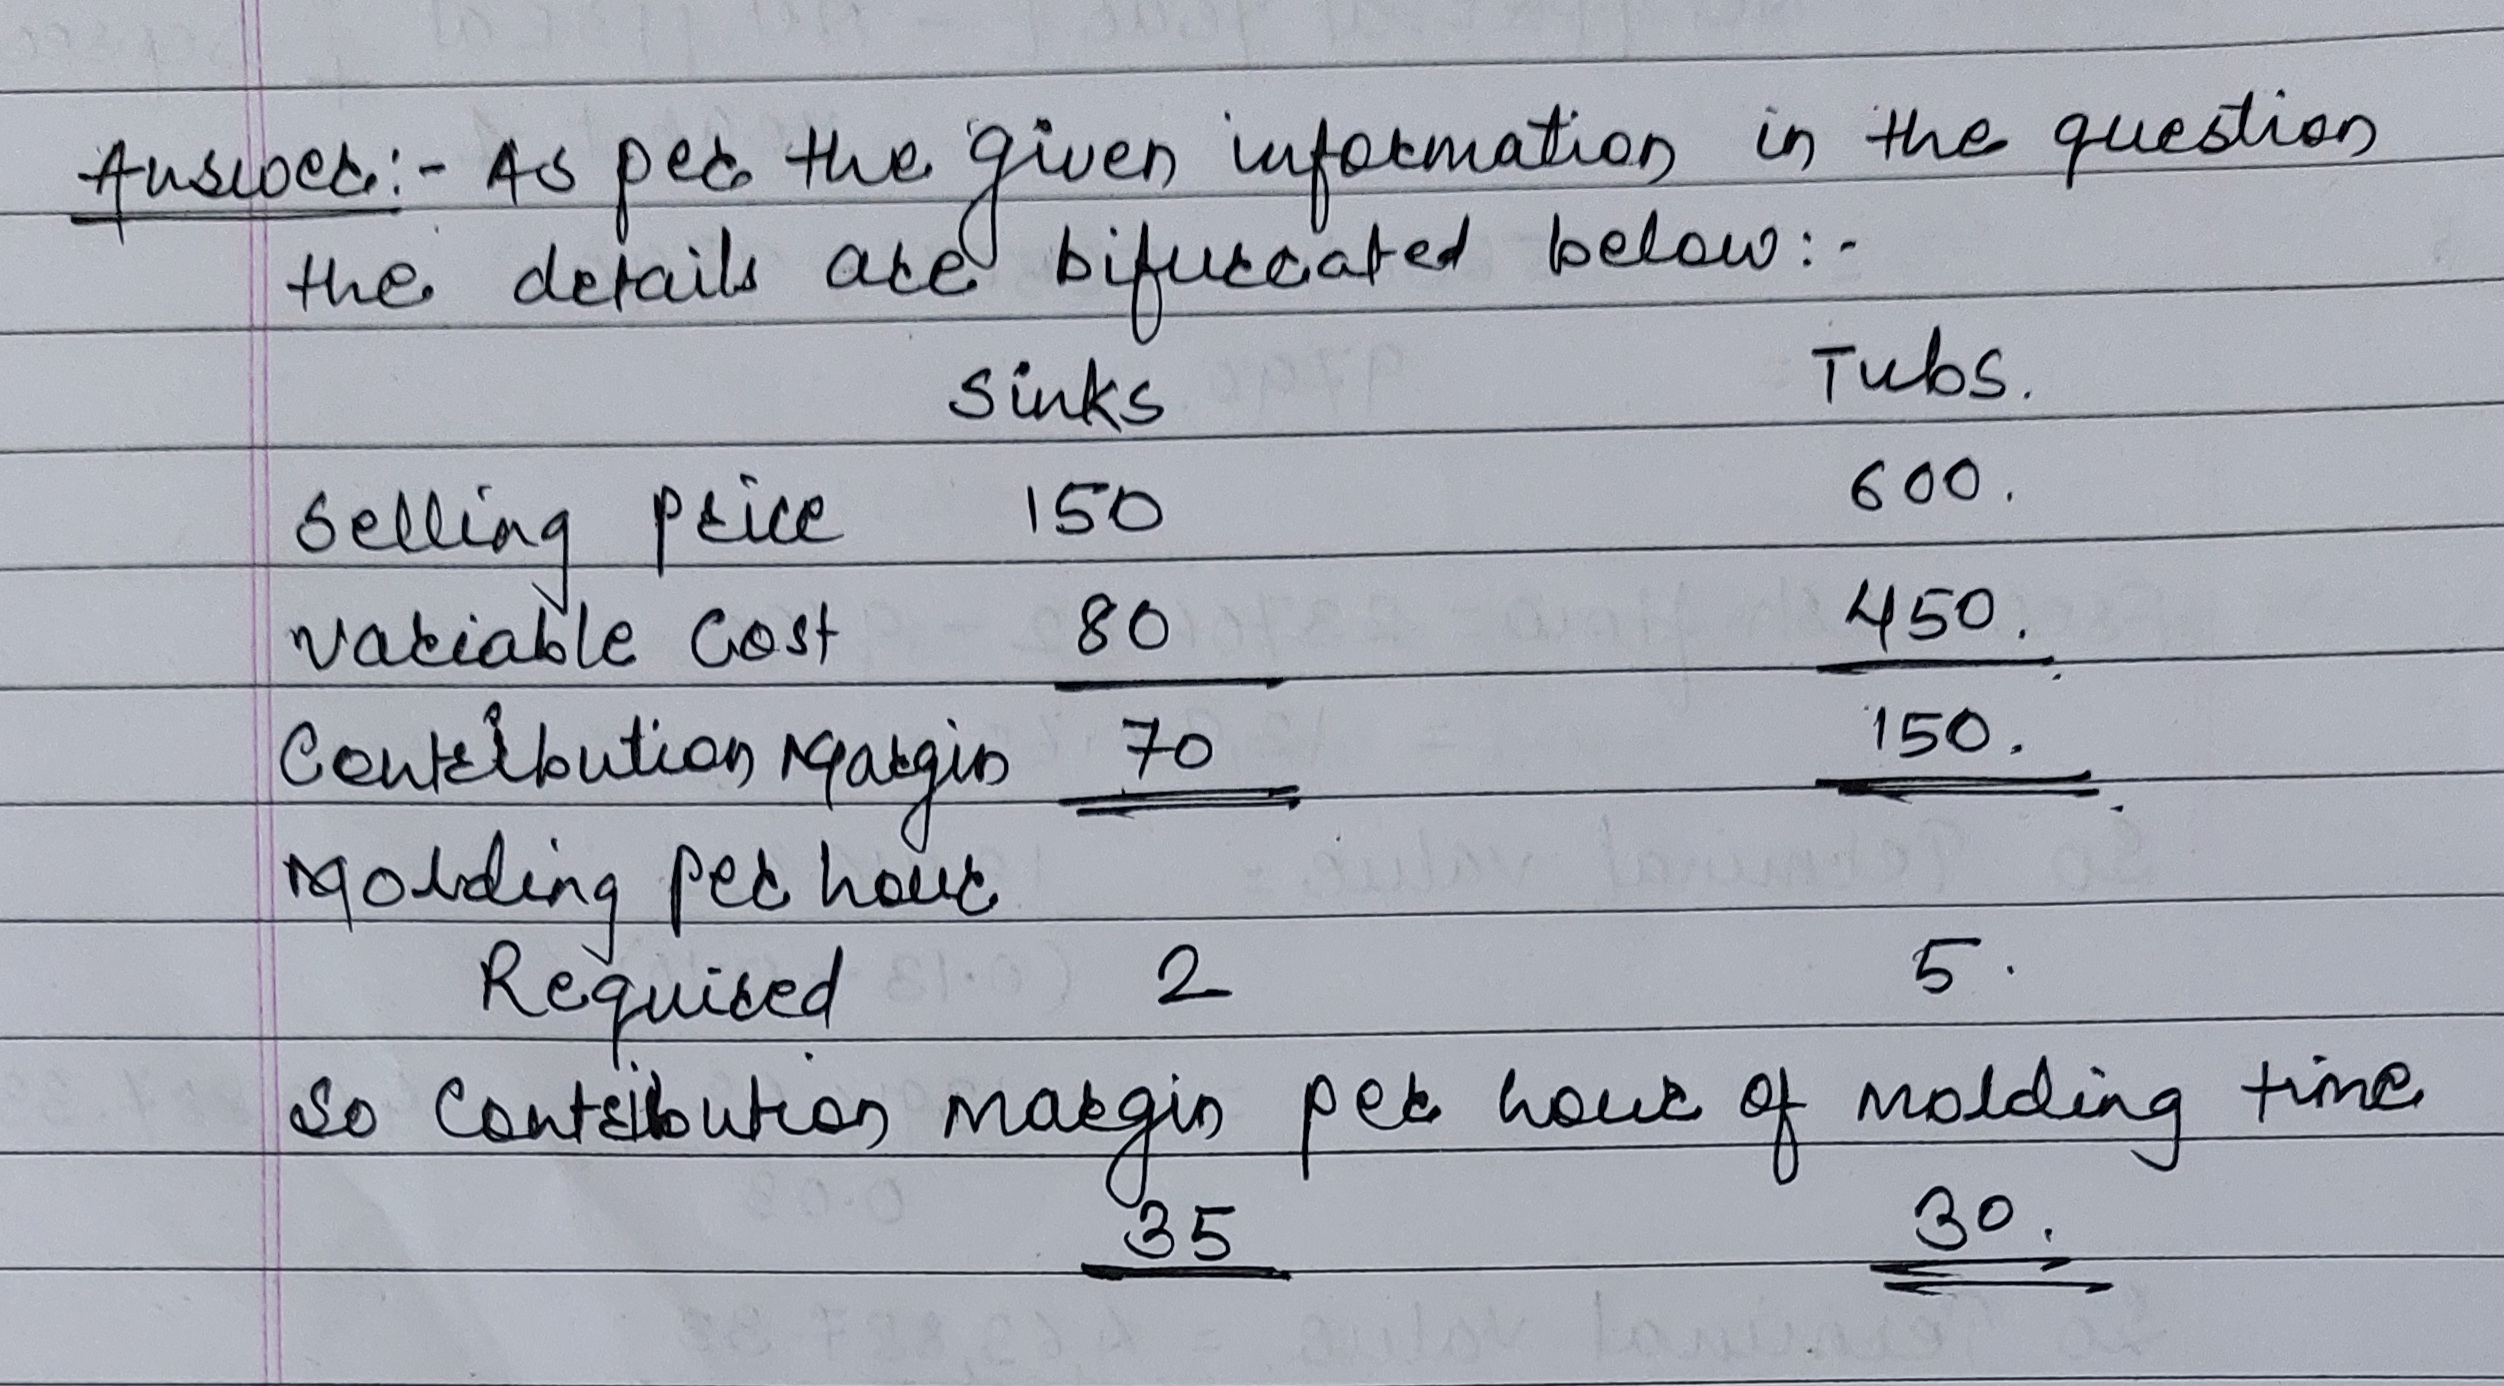 Answer:- As per the given information in the question
the details are bifurcated below:-
Sinks Tubs.
Selling price 150 600.
Variable Cost 80 450.
Contribution Margin 70 150.
Molding per hour
Required 2 5.
So Contribution margin per hour of molding time
35 30.